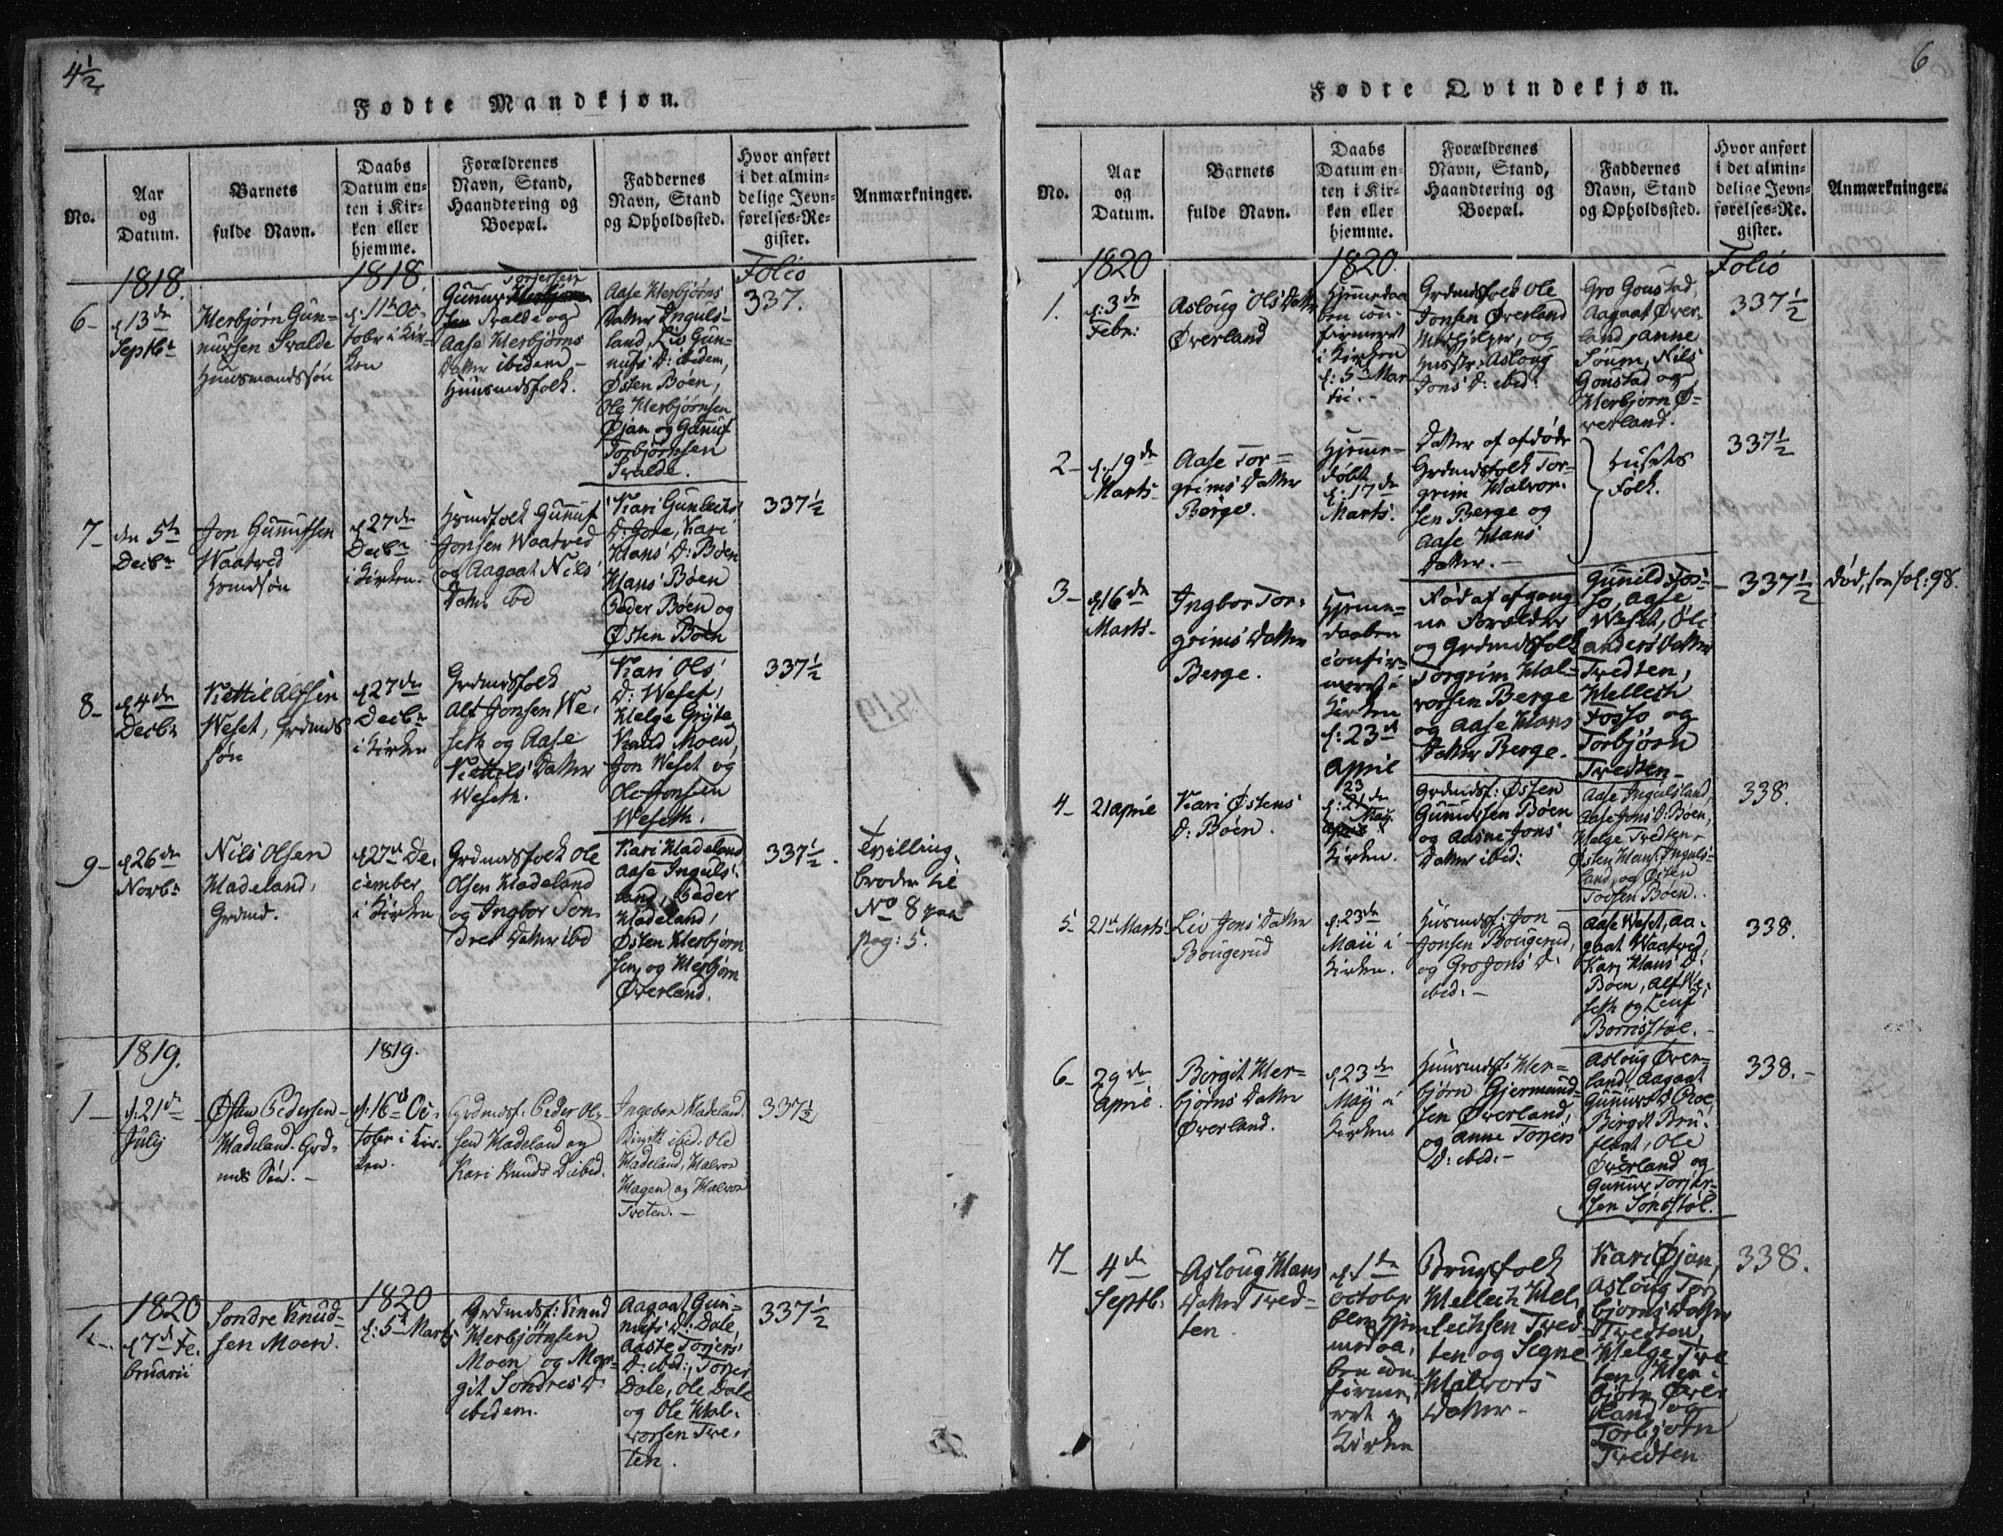 4½
Fødte Mandkjøn.
No.
Aar
og
Datum.
Barnets
fulde Navn.
Daabs
Datum en-
ten i Kir-
ken eller
hjemme.
Forældrenes
Navn, Stand,
Haandtering og
Boepæl.
Faddernes
Navn, Stand
og Opholdssted.
Hvor anført
i det almin-
delige Jevn-
førelses-Re-
gister.
Anmærkninger.
1818.
1818.
Folio
6-
d: 13de
Septbr
Herbjørn Gun-
nursen Tvalde
Huusmandssøn
d: 11te Oc-
tobr i Kir-
ken
Torjersen
Gunnur
Tvalde og
Aase Herbjørns
Datter ibidem -
Huusmdsfolk.
Aase Herbjørns
Datter Inguls-
land, Liv Gun-
nufs D: ibidem,
Østen Bøen,
Ole Herbjørnsen
Øjan og Gunnuf
Torbjørnsen
Tvalde.
337.
7-
den 5te
Decbr
Jon Gunnufsen
Waatved
Hsmdsøn
d 27de
Decbr
i Kirken.
Hsmdfolk Gunnuf
Jonsen Waatved
og Aagaat Nils
Datter ibd
Kari Gunleiks
D: Jore, Kari
Hans D: Bøen
Hans Bøen
Peder Bøen og
Østen Bøen
337½
8-
d 4de
Decbr
Kettil Alfsen
Weset, Grdmds
søn
d 27de
Decbr
i Kirken
Grdmdsfolk
Alf Jonsen We-
seth og Aase
Kettils Datter
Weseth.
Kari Ols
D: Weset,
Helge Grøte
Knud Moen,
Jon Weset og
Ole Jonsen
Weseth.
337½
9-
d 26de
Novbr
Nils Olsen
Hadeland,
Grdmd.
d 27de De-
cember
i Kirken
Grdmdsfolk Ole
Olsen Hadeland
og Ingbor Son-
dres Datter ibd
Kari Hadeland
Aase Inguls-
land, Peder
Hadeland,
Østen Herbjørn
sen, og Herbjørn
Øverland.
337½.
Tvilling-
broder til
No 8 paa
pag: 5.
1819.
1819.
1-
d: 21de
July
Østen Pedersen
Hadeland. Grd-
mds Søn. -
d: 16de Oc-
tobr i Kir-
ken.
Grdmdsf: Peder Ol-
sen Hadeland og
Kari Knuds D: ibid.
Ingebor Hadeland.
Birgith ibid. Ole
Hadeland, Halvor
Hagen og Halvor
Treten. -
337½
1820
1820
1.
d 7de Fe-
bruarii
Sondre Knud-
sen Moen.
d: 5te Marts
Grdmdsf: Knud
Herbjørnsen
Moen og Mar-
git Sondres D:
ibidem.
Aagaat Gun-
nufs D: Dale,
Aaste Torjers
D: ibid:, Torjer
Dale, Ole Dale
og Ole Hal-
vorsen Tre-
ten.
337½
6
Fødte Qvindekjøn.
No.
Aar
og
Datum.
Barnets
fulde Navn.
Daabs
Datum en-
ten i Kir-
ken eller
hjemme.
Forældrenes
Navn, Stand,
Haandtering og
Boepæl.
Faddernes
Navn, Stand
og Opholdssted.
Hvor anført
i det almin-
delige Jevn-
førelses-Re-
gister.
Anmærkninger.
1820
1820.
Folio
1.
d: 3de
Febr:
Asloug Ols Datter
Øverland
Hjemmedaa-
ben con-
firmeret
i Kirken
d: 5te Mar-
tii. -
Grdmdsfolk Ole
Jonsen Øverland
Medhjelper, og
Hustr: Asloug
Jons D: ibid:
Gro Goustad,
Aagaat Øver-
land, Anne
Søum, Nils
Goustad og
Herbjørn Ø-
verland.
337½
2-
d: 19de
Marts-
Aase Tor-
grims Datter
Berge.
Hjemme-
døbt
d: 17de
Marts.
Datter af afdøde
Grdmdsfolk Tor-
grim Halvor-
sen Berge og
Aase Hans
Datter. -
Husets
Folk.
337½
3-
d 16de
Marts-
Ingbor Tor-
grims Datter
Berge.
Hjemme-
daaben
confir-
meret i
Kirken
d: 23de
April
Fød af afgang-
ne Forælder
og Grdmdsfolk
Torgrim Hal-
vorsen Berge
og Aase Hans
Datter Berge.
Gunild Fos-
so, Aase
Weset, Oli
Anders Datter
Tredten,
Hellech
Fosso og
Torbjørn
Tredten-
337½
Død, see fol: 98.
4-
21 April
Kari Østens
D: Bøen.
23
d: 21de
Maji
April i
Kirken.
Grdmdsf: Østen
Gunnursen Bøen
og Aasne Jons
Datter ibid:
Aase Ingulsland,
Aase Jons D: Bøen,
Helge Tredten
Østen Hans: Inguls-
land, og Østen
Todsen Bøen.
338.
5-
21de Marts
Liv Jons Datter
Bougerud
d: 23de
Maii i
Kirken.
Husmdsf: Jon
Jonsen Bougerud,
og Gro Jons D:
ibid: -
Aase Weset, Aa-
gaat Waatved,
Kari Hans D:
Bøen, Alf We-
seth og Leuf
Borrisstøl. -
338.
6-
29de
April
Birgit Her-
bjørns Datter
Øverland.
d 23de
Maij i
Kirken
Huusmdsf: Her-
bjørn Gjermund-
sen Øverland,
og Anne Torjers
D: ibid: -
Asloug Øver-
land, Aagaat
Gunnurs D: Roe,
Birgit Bru-
flaat, Ole
Øverland og
Gunnur Torjer-
sen Sønstøl.
338. -
7-
4de
Septbr:
Asloug Hans
Datter Tred-
ten.
d 1de
Octobr
blev Hjem-
medaa-
ben con-
firme-
ret i
Kirken
Brugsfolk
Hellech Hel-
lechsen Tred-
ten og Signe
Halvors
Datter -
Kari Øjan,
Asloug Tor-
bjørns Datter
Tredten,
Helge Tre
ten, Her-
bjørn Øver
land og
Torbjørn
Tredten
338.